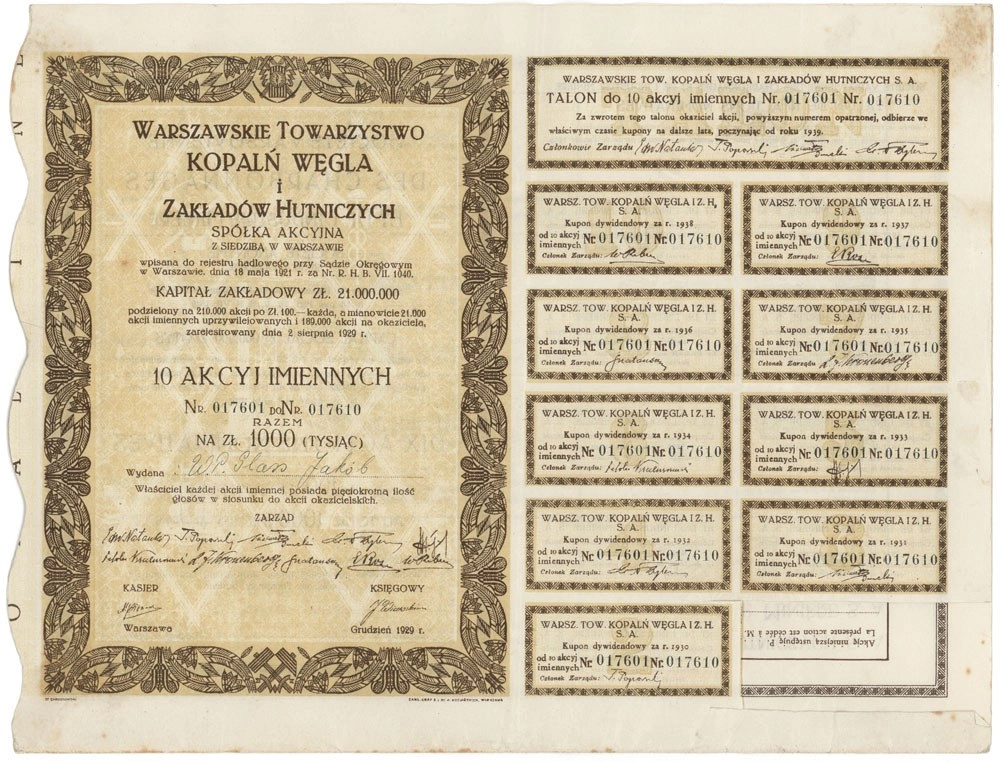 WARSZAWSKIE TOWARZYSTWO
KOPALŃ WĘGLA
i
ZAKŁADÓW HUTNICZYCH
SPÓŁKA AKCYJNA
Z SIEDZIBĄ W WARSZAWIE
wpisana do rejestru hadlowego przy Sądzie Okręgowym
w Warszawie, dnia 18 maja 1921 r. za Nr. R. H. B. VII. 1040.
KAPITAŁ ZAKŁADOWY ZŁ. 21.000.000
podzielony na 210.000 akcji po Zł. 100.— każda, a mianowicie 21.000
akcji imiennych uprzywilejowanych i 189.000 akcji na okaziciela,
zarejestrowany dnia 2 sierpnia 1929 r.
10 AKCYJ IMIENNYCH
NR. 017601 DO NR. 017610
RAZEM
NA ZŁ. 1000 (TYSIĄC)
Wydana: W.P. Glass Jakób
Właściciel każdej akcji imiennej posiada pięciokrotną ilość
głosów w stosunku do akcji okazicielskich.
ZARZĄD
KASJER KSIĘGOWY
Warszawa Grudzień 1929 r.
WARSZAWSKIE TOW. KOPALŃ WĘGLA I ZAKŁADÓW HUTNICZYCH S. A.
TALON do 10 akcyj imiennych Nr. 017601 Nr. 017610
Za zwrotem tego talonu okaziciel akcji, powyższym numerem opatrzonej, odbierze we
właściwym czasie kupony na dalsze lata, poczynając od roku 1939.
Członkowie Zarządu
WARSZ. TOW. KOPALŃ WĘGLA I Z. H.
S. A.
Kupon dywidendowy za r. 1938
od 10 akcyj
imiennych Nr 017601 Nr 017610
Członek Zarządu:
WARSZ. TOW. KOPALŃ WĘGLA I Z. H.
S. A.
Kupon dywidendowy za r. 1937
od 10 akcyj
imiennych Nr 017601 Nr 017610
Członek Zarządu:
WARSZ. TOW. KOPALŃ WĘGLA I Z. H.
S. A.
Kupon dywidendowy za r. 1936
od 10 akcyj
imiennych Nr 017601 Nr 017610
Członek Zarządu:
WARSZ. TOW. KOPALŃ WĘGLA I Z. H.
S. A.
Kupon dywidendowy za r. 1935
od 10 akcyj
imiennych Nr 017601 Nr 017610
Członek Zarządu:
WARSZ. TOW. KOPALŃ WĘGLA I Z. H.
S. A.
Kupon dywidendowy za r. 1934
od 10 akcyj
imiennych Nr 017601 Nr 017610
Członek Zarządu:
WARSZ. TOW. KOPALŃ WĘGLA I Z. H.
S. A.
Kupon dywidendowy za r. 1933
od 10 akcyj
imiennych Nr 017601 Nr 017610
Członek Zarządu:
WARSZ. TOW. KOPALŃ WĘGLA I Z. H.
S. A.
Kupon dywidendowy za r. 1932
od 10 akcyj
imiennych Nr 017601 Nr 017610
Członek Zarządu:
WARSZ. TOW. KOPALŃ WĘGLA I Z. H.
S. A.
Kupon dywidendowy za r. 1931
od 10 akcyj
imiennych Nr 017601 Nr 017610
Członek Zarządu:
WARSZ. TOW. KOPALŃ WĘGLA I Z. H.
S. A.
Kupon dywidendowy za r. 1930
od 10 akcyj
imiennych Nr 017601 Nr 017610
Członek Zarządu:
Akcję niniejszą ustępuję P.
La présente action est cédée à M.